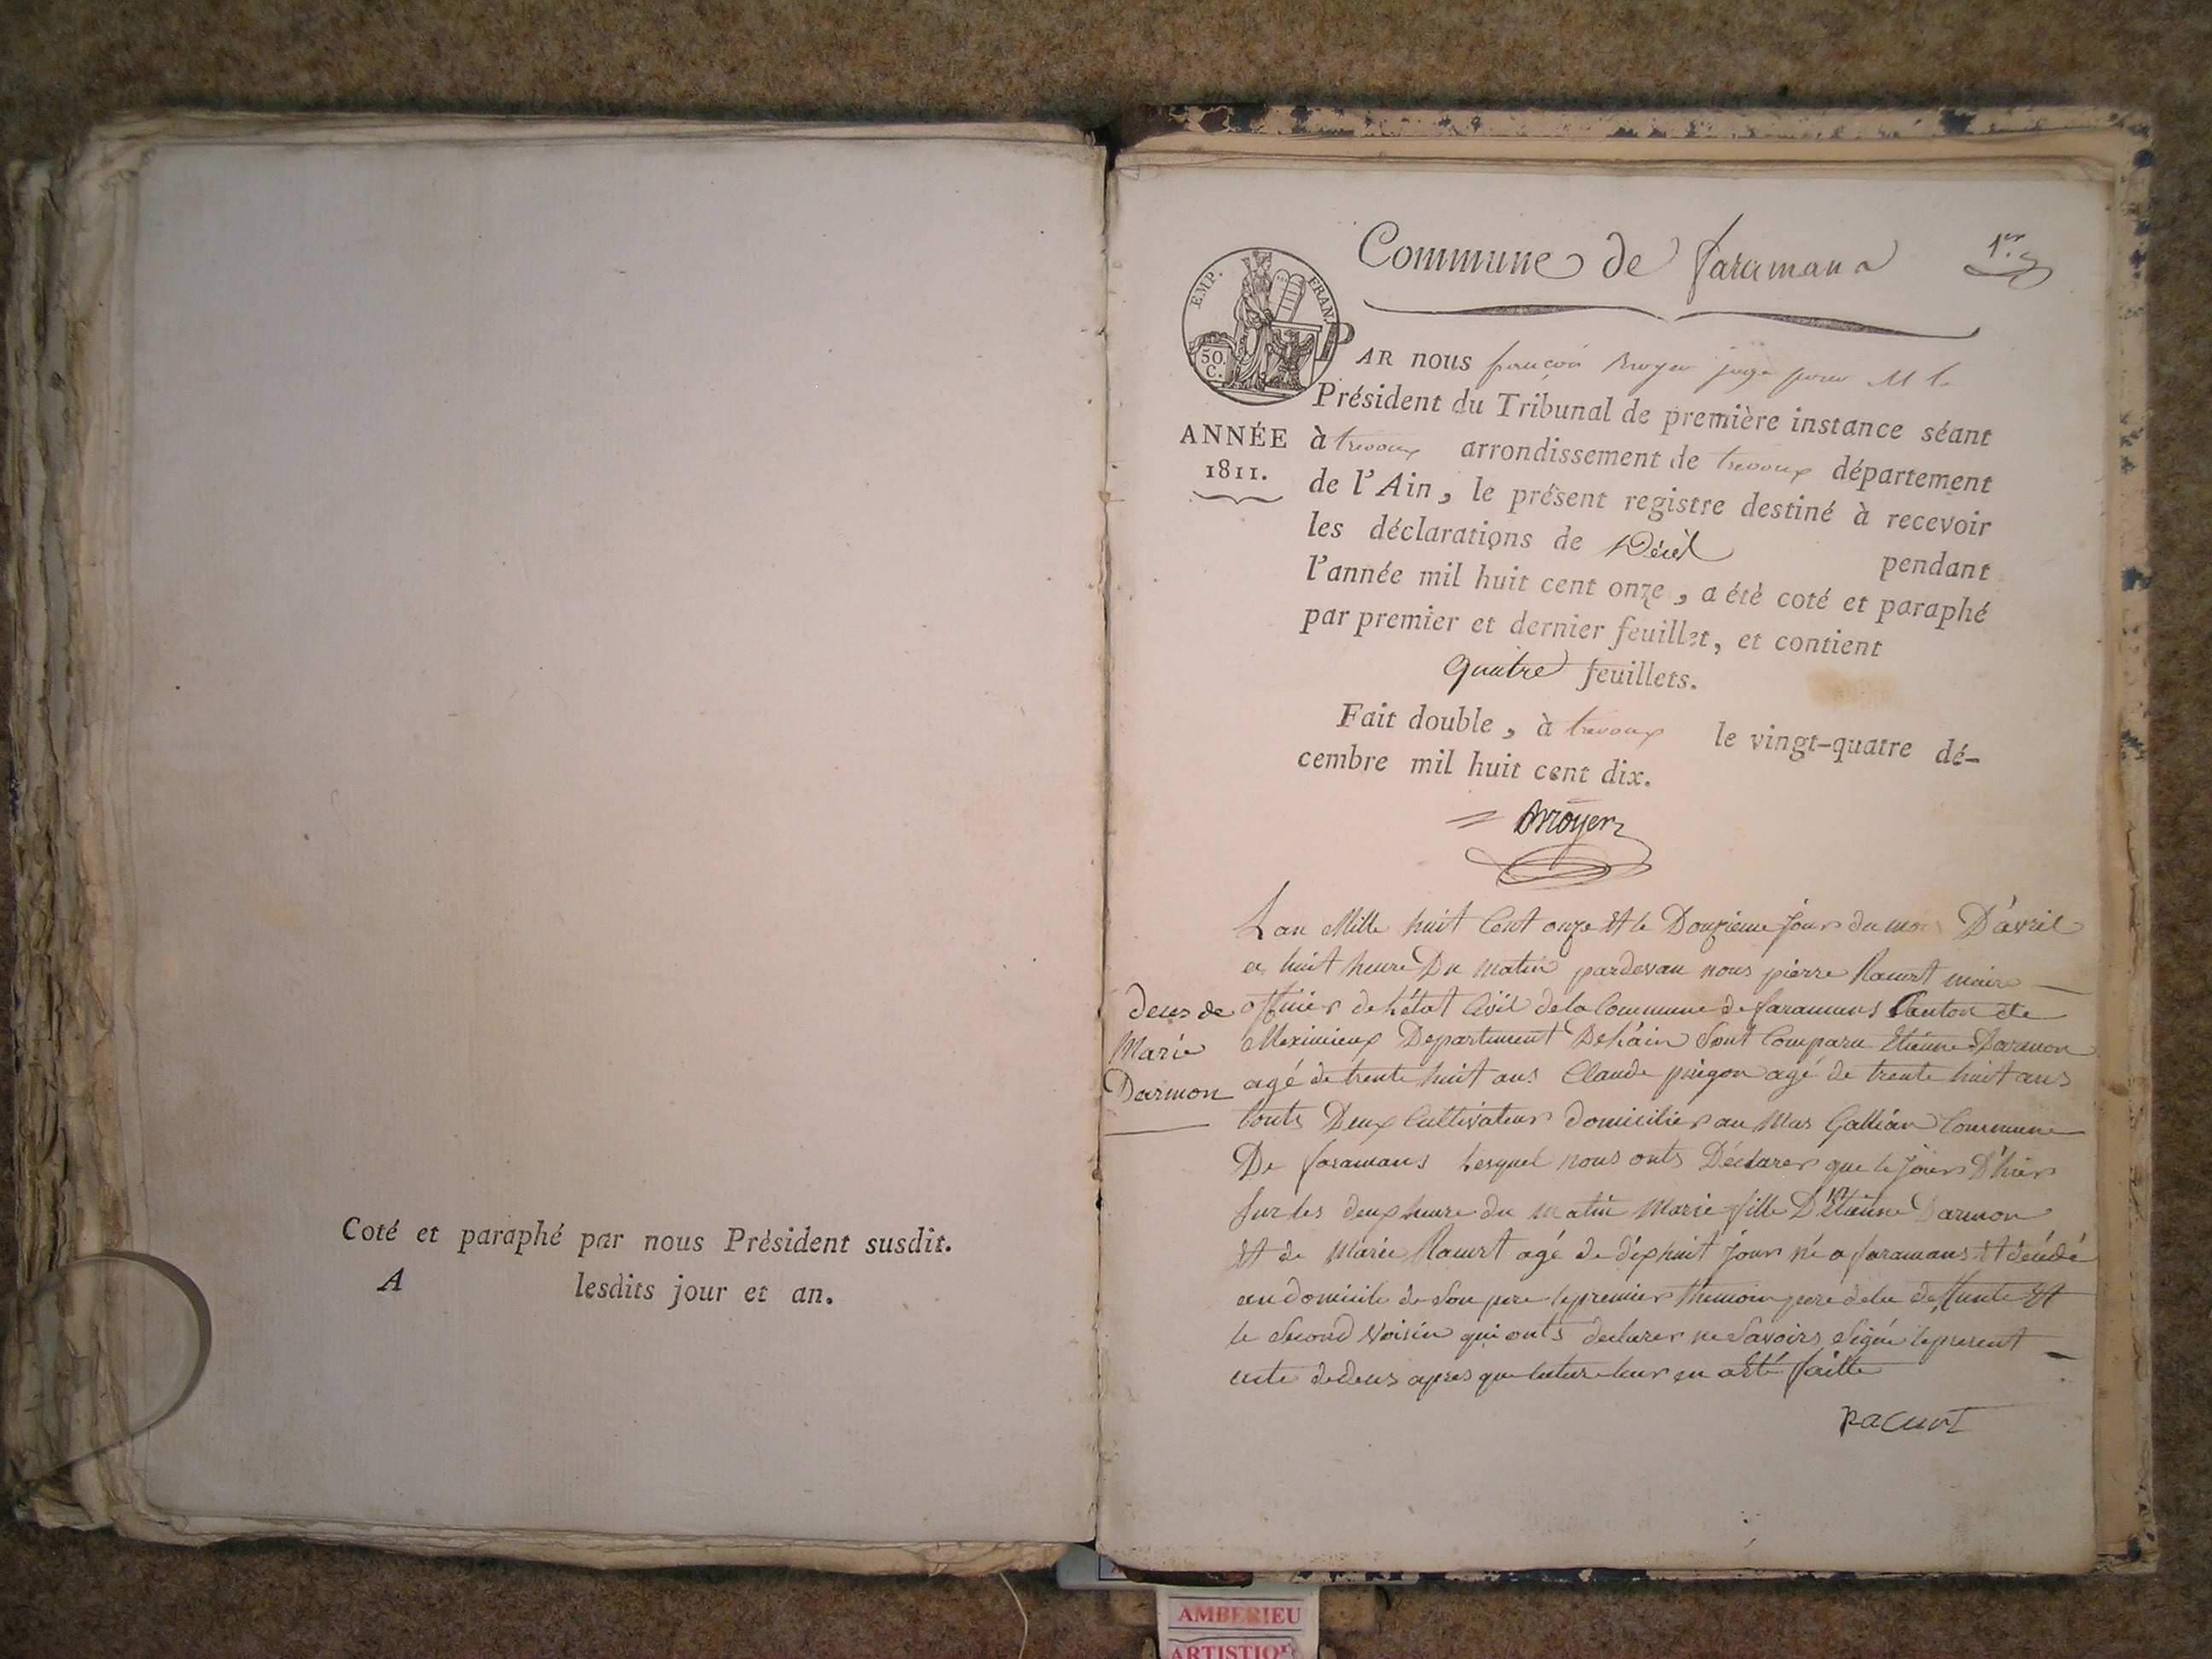 Coté et paraphé par nous Président susdit.
A lesdits jour et an.
Commune de faramans
1er
EMP. FRAN.
50.
C.
ANNÉE
1811.
PAR nous françois Bruyer juge pour M le
Président du Tribunal de première instance séant
à trevoux arrondissement de trevoux département
de l'Ain, le présent registre destiné à recevoir
les déclarations de Décès pendant
l'année mil huit cent onze, a été coté et paraphé
par premier et dernier feuillet, et contient
quatre feuillets.
Fait double, à trevoux le vingt-quatre dé-
cembre mil huit cent dix.
deces de
Marie
Darmon
Lan Mille huit Cent onze Et le Douzieme jour du mois D'avril
a huit heure Du matin pardevan nous pierre Racurt maire
officier de l'état Civil de la Commune de faramans Canton de
Meximieux Departement De l'ain Sont Comparu Etienne Darmon
agé de trente huit ans Claude pingon agé de trente huit ans
touts Deux Cultivateur domicilier au Mas Gallian Commune
De faramans Lesquel nous onts Déclarer que le jour D'hier
sur les deux heure du matin Marie fille D'Etienne Darmon
Et de Marie Racurt agé de dixhuit jour né a faramans Et décédé
au domicile de Son pere le premier themoin pere de la deffunte Et
le Second Voisin qui onts declarer ne Savoirs Signé le present
acte de deces apres que lecture leur en a Eté faitte
Racurt
AMBERIEU
ARTISTIQUE